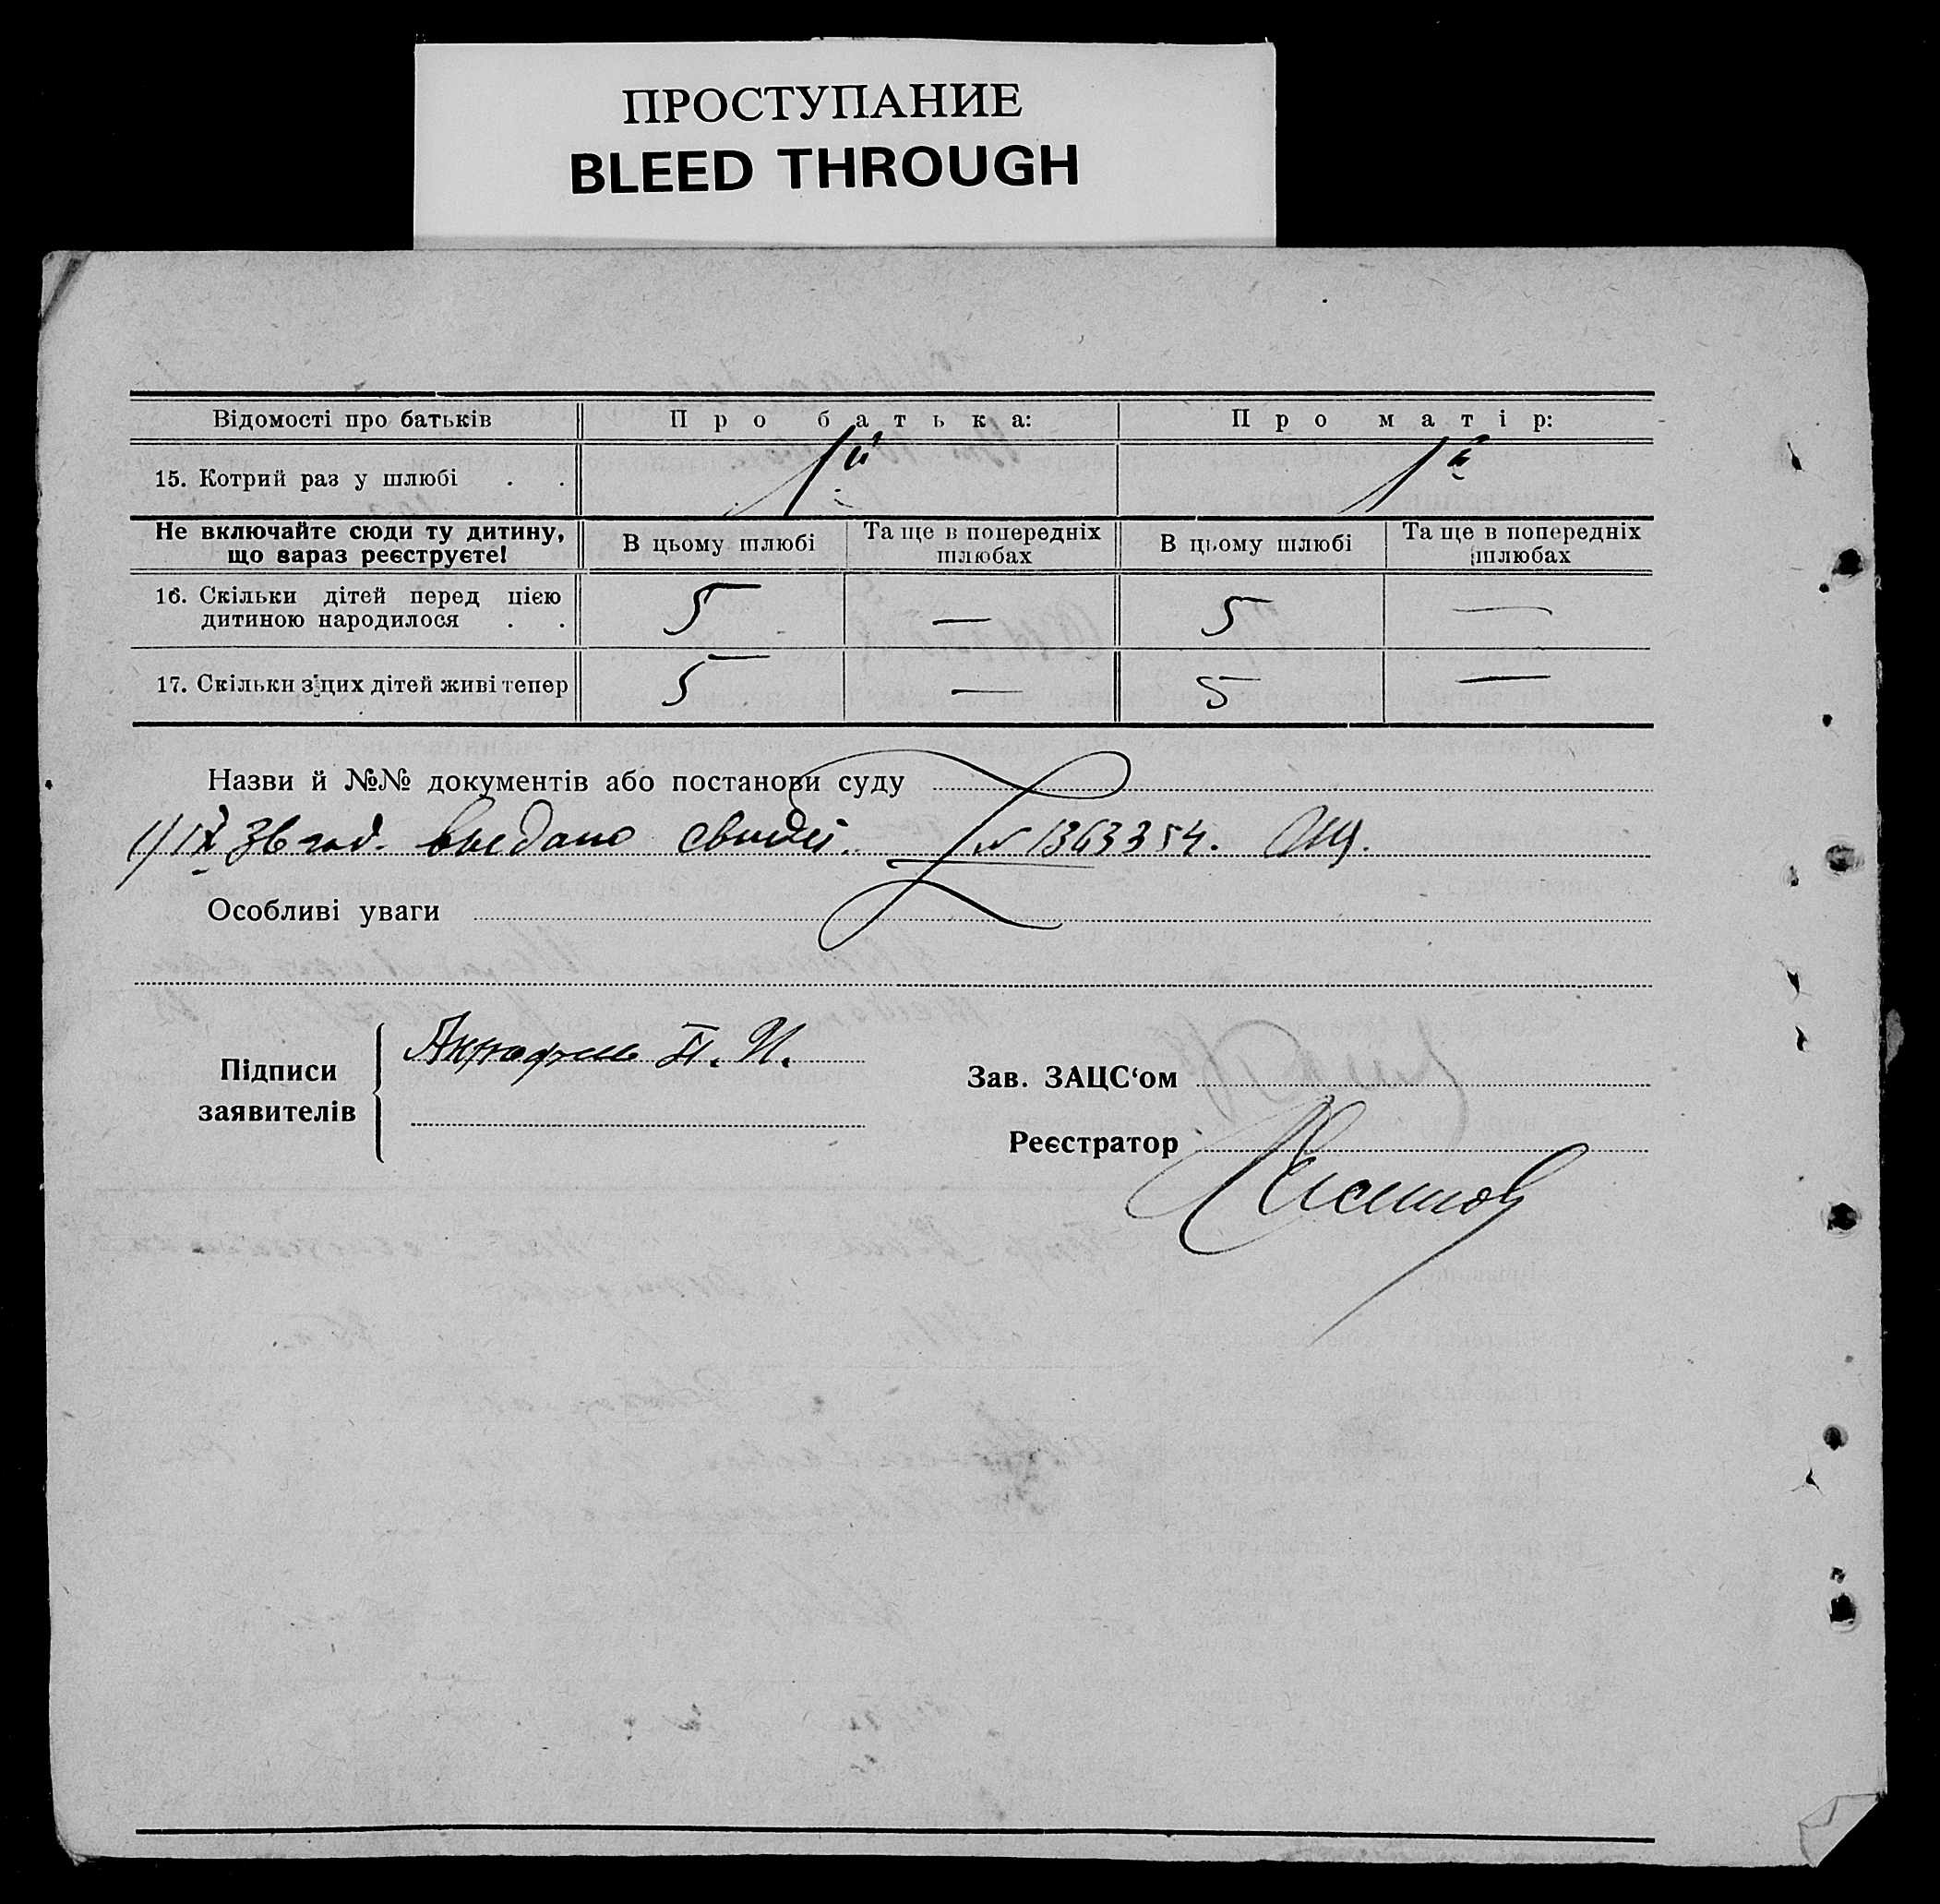 ПРОСТУПАНИЕ
BLEED THROUGH
Відомості про батьків Про батька: Про матір:
15. Котрий раз у шлюбі . . 1й 1й
Не включайте сюди ту дитину, що зараз реєструєте! В цьому шлюбі Та ще в попередніх шлюбах В цьому шлюбі Та ще в попередніх шлюбах
16. Скільки дітей перед цією дитиною народилося . . 5 — 5 —
17. Скільки з цих дітей живі тепер 5 — 5 —
Назви й №№ документів або постанови суду
1/IX 36 год. выдано свидет. № 1363354.
Особливі уваги
Підписи заявителів П. И.
Зав. ЗАЦС‘ом
Реєстратор